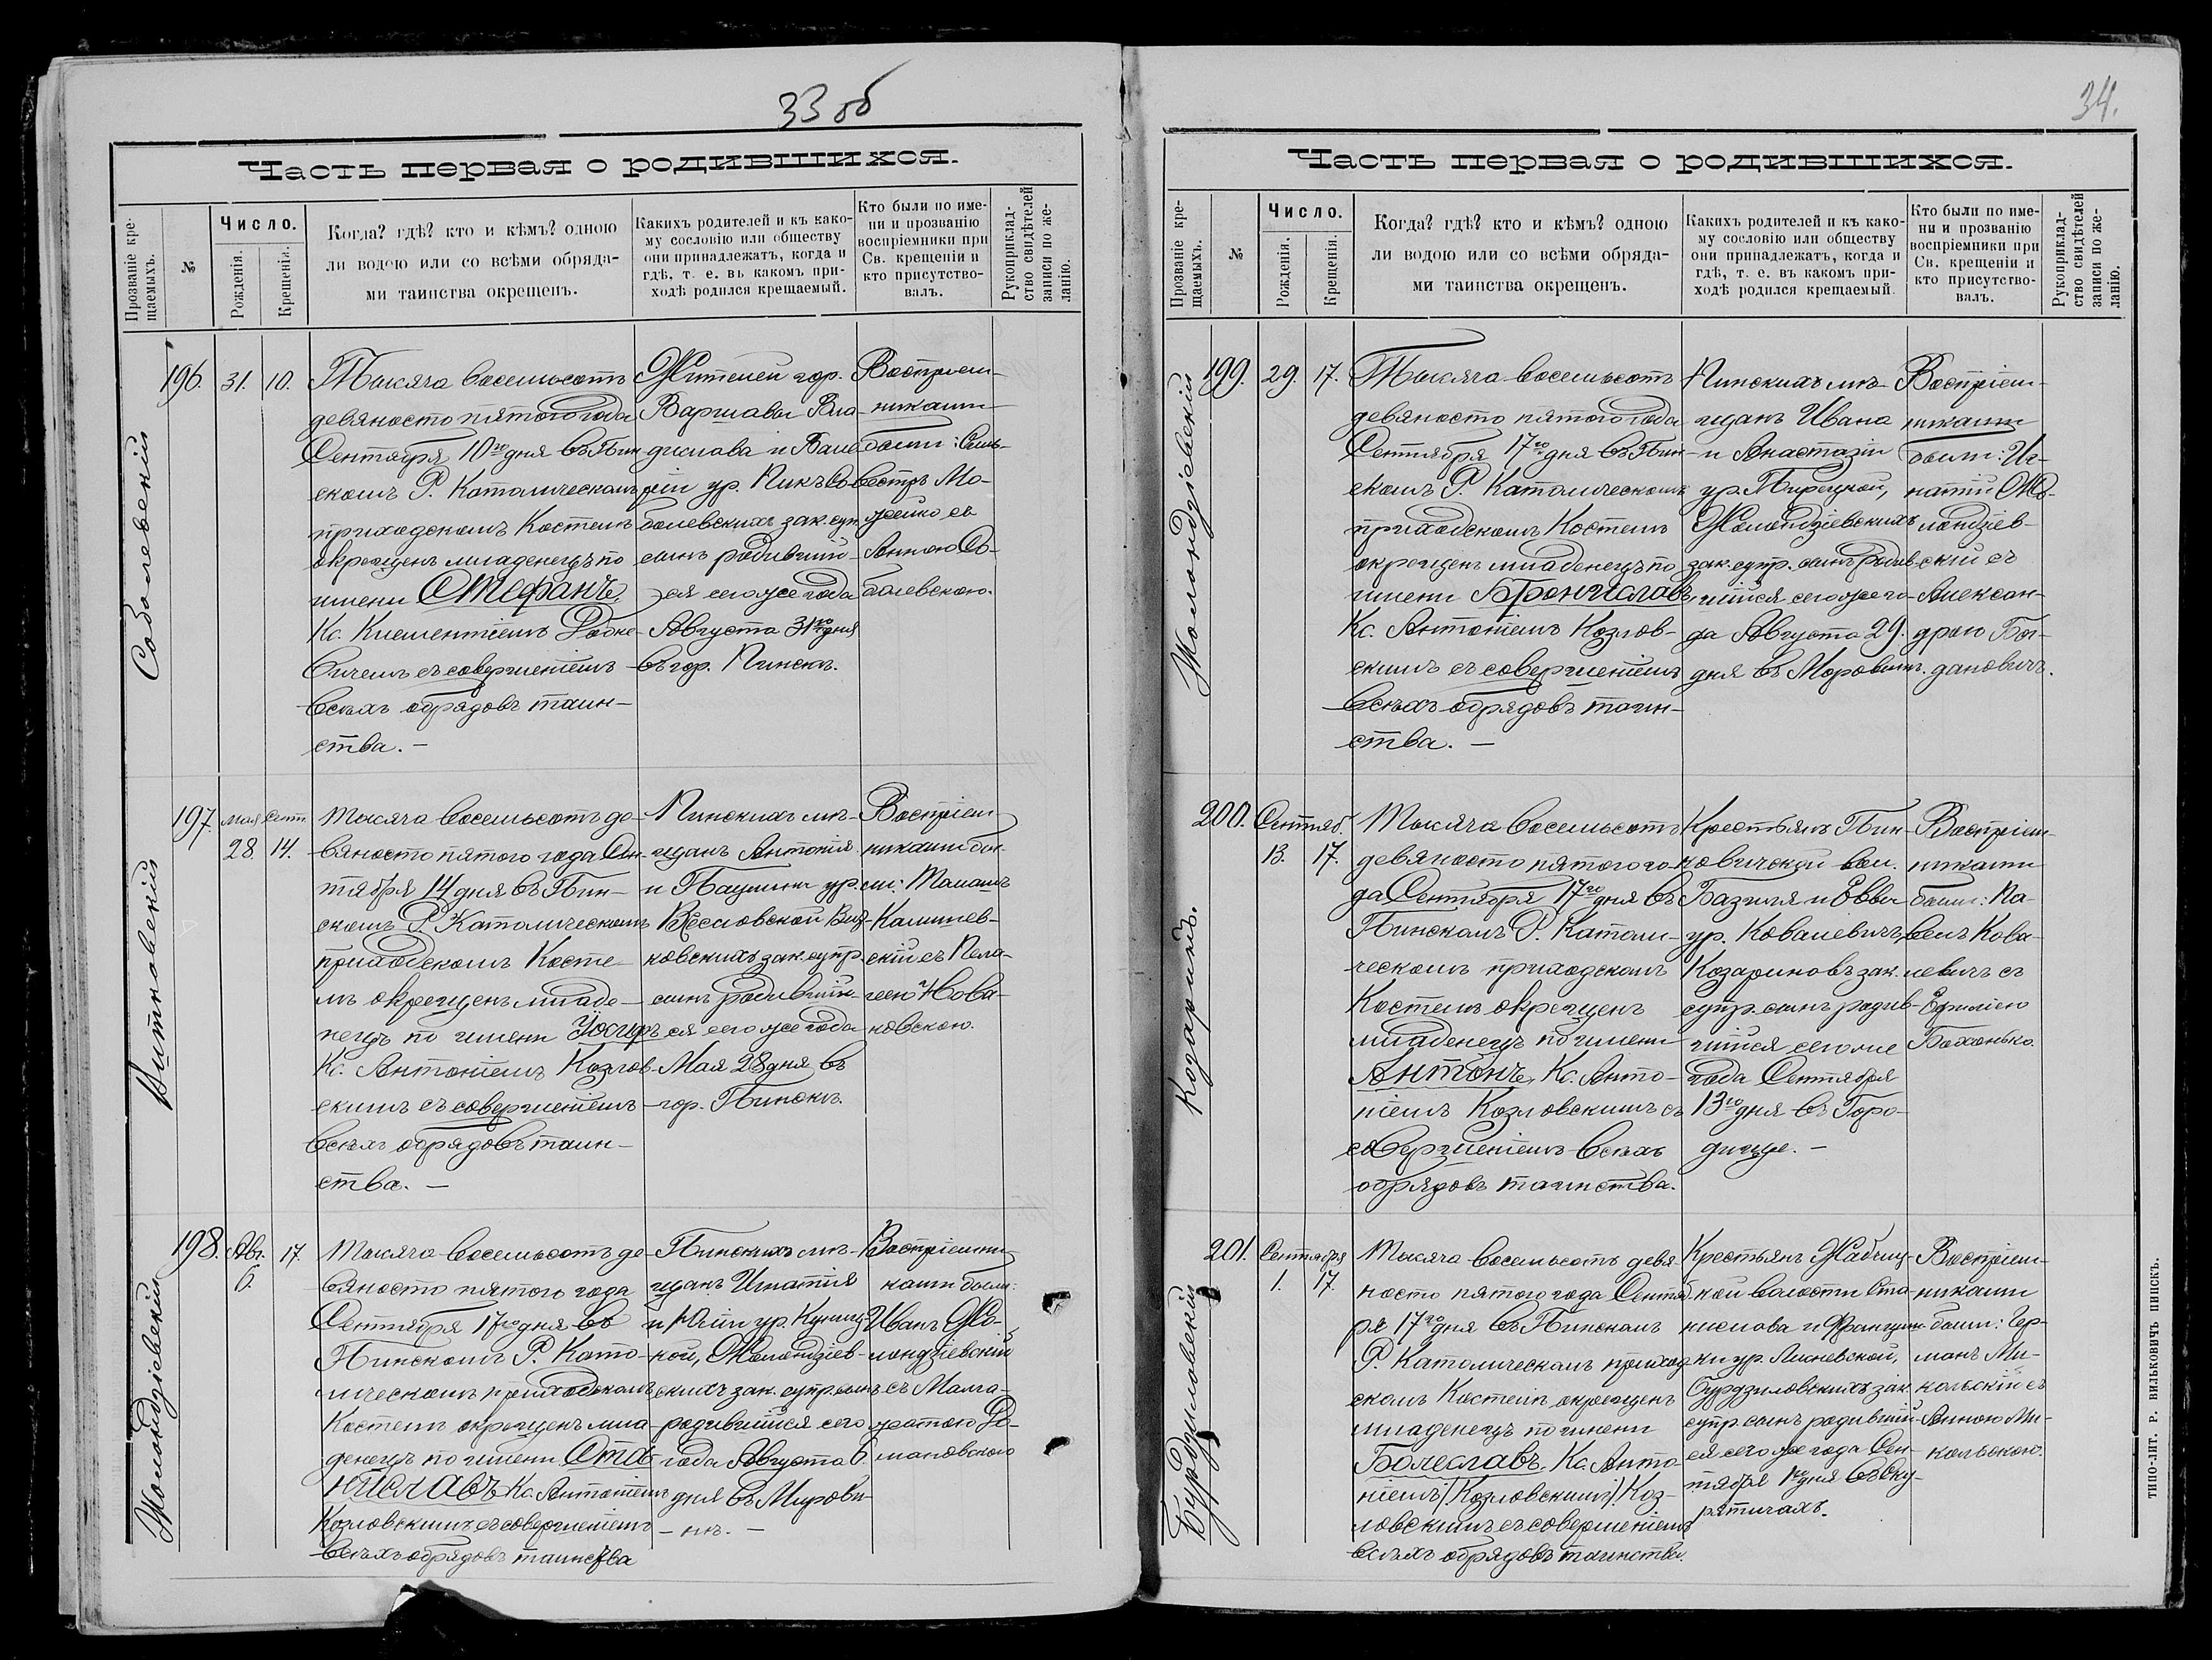 33 об
Часть первая о родившихся.
Прозваніе кре-
щаемыхъ.
№
Число.
Рожденія.
Крещенія.
Когда? гдѣ? кто и кѣмъ? одною
ли водою или со всѣми обряда-
ми таинства окрещенъ.
Какихъ родителей и къ како-
му сословію или обществу
они принадлежатъ, когда и
гдѣ, т. е. въ какомъ при-
ходѣ родился крещаемый.
Кто были по име-
ни и прозванію
воспріемники при
Св. крещеніи и
кто присутство-
валъ.
Рукоприклад-
ство свидѣтелей
записи по же-
ланію.
Соболевскій
196. 31. 10.
Тысяча восемьсотъ
девяносто пятого года
Сентября 10го дня въ Пин
скомъ Р. Католическомъ
приходскомъ Костелѣ
окрещенъ младенецъ по
имени Стефанъ,
Кс. Клементіемъ
вичемъ съ совершеніемъ
всѣхъ обрядовъ таин-
ства. —
Жителей гор.
Варшавы Вла-
дислава и Вале
ріи ур. Пикъ Со-
болевскихъ зак. суп.
сынъ родившій-
ся сего же года
Августа 31го дня
въ гор. Пинскѣ.
Воспріем-
никами
были: Силь-
вестръ Мо-
жейко съ
Анною Со-
болевскою.
Витковскій
197. мая 28. Сент. 14.
Тысяча восемьсотъ де-
вяносто пятого года Сен-
тября 14 дня въ Пин-
скомъ Р. Католическомъ
приходскомъ Косте-
лѣ окрещенъ младе-
нецъ по имени Іосифъ
Кс. Антоніемъ Козлов-
скимъ съ совершеніемъ
всѣхъ обрядовъ таин-
ства. —
Пинскихъ мѣ-
щанъ Антонія
и Паулины ур.
Вит-
ковскихъ зак. супр.
сынъ родившій-
ся сего же года
Мая 28 дня въ
гор. Пинскѣ.
Воспріем-
никами бы-
ли: Томашъ
Калинов-
скій съ Пела-
гею Нова-
ковскою.
Жолондзіевскій
198. Авг. 6. 17.
Тысяча восемьсотъ де-
вяносто пятого года
Сентября 17го дня въ
Пинскомъ Р. Като-
лическомъ приходскомъ
Костелѣ окрещенъ мла-
денецъ по имени Ста-
ниславъ Кс. Антоніемъ
Козловскимъ съ совершеніемъ
всѣхъ обрядовъ таинства
Пинскихъ мѣ-
щанъ Игнатія
и Юліи ур. Куниц-
кой, Жолондзіев-
скихъ зак. супр. сынъ
родившійся сего
года Августа 6
дня въ Мирови-
нѣ. —
Воспріемни
ками были:
Иванъ Жо-
лондзіевскій
съ Малга-
жатою До-
мановскою
34.
Часть первая о родившихся.
Прозваніе кре-
щаемыхъ.
№
Число.
Рожденія.
Крещенія.
Когда? гдѣ? кто и кѣмъ? одною
ли водою или со всѣми обряда-
ми таинства окрещенъ.
Какихъ родителей и къ како-
му сословію или обществу
они принадлежатъ, когда и
гдѣ, т. е. въ какомъ при-
ходѣ родился крещаемый.
Кто были по име-
ни и прозванію
воспріемники при
Св. крещеніи и
кто присутство-
валъ.
Рукоприклад-
ство свидѣтелей
записи по же-
ланію.
Жолондзіевскій
199. 29. 17.
Тысяча восемьсотъ
девяносто пятого года
Сентября 17го дня въ Пин-
скомъ Р. Католическомъ
приходскомъ Костелѣ
окрещенъ младенецъ по
имени Брониславъ,
Кс. Антоніемъ Козлов-
скимъ съ совершеніемъ
всѣхъ обрядовъ таин-
ства. —
Пинскихъ мѣ-
щанъ Ивана
и Анастазіи
ур. Бирецкой,
Жолондзіевскихъ
зак. супр. сынъ родив-
шійся сего же го-
да Августа 29.
дня въ Моровинѣ.
Воспріем-
никами
были: Иг-
натій Жо-
лондзіев-
скій съ
Алексан-
дрою Бог-
дановичъ.
Козаринъ.
200. Сентяб. 13. 17.
Тысяча восемьсотъ
девяносто пятого го-
да Сентября 17го дня въ
Пинскомъ Р. Католи-
ческомъ приходскомъ
Костелѣ окрещенъ
младенецъ по имени
Антонъ, Кс. Анто-
ніемъ Козловскимъ съ
совершеніемъ всѣхъ
обрядовъ таинства.
Крестьянъ Пин-
ковичской вол.
Базыля и Еввы
ур. Ковалевичъ,
Козариновъ зак.
супр. сынъ родив-
шійся сего же
года Сентября
13го дня въ Горо-
дище. —
Воспріем-
никами
были: Па-
велъ Кова-
левичъ съ
Ефиміею
Боханько.
Бурдзиловскій
201. Сентября 1. 17.
Тысяча восемьсотъ девя-
носто пятого года Сентяб-
ря 17го дня въ Пинскомъ
Р. Католическомъ приход
скомъ Костелѣ окрещенъ
младенецъ по имени
Болеславъ, Кс. Анто-
ніемъ /Козловскимъ/ Коз-
ловскимъ съ совершеніемъ
всѣхъ обрядовъ таинства.
Крестьянъ Жабчиц-
кой волости Ста-
нислова и Францишки
ур. Лисневской,
Бурдзиловскихъ зак.
супр. сынъ родившій-
ся сего же года Сен-
тября 1го дня въ Ку-
рятичахъ.
Воспріем-
никами
были: Гер-
манъ Ми-
кольскій съ
Анною Ми-
кольскою.
ТИПО-ЛИТ. Р. ВИЛЬКОВИЧЪ ПИНСКЪ.